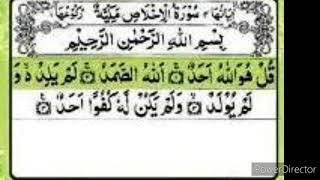 اٰیَاتُهَا ٤ سُوْرَةُ الْاِخْلَاصِ مَکِّیَّةٌ رُکُوْعُهَا ١
بِسْمِ اللّٰهِ الرَّحْمٰنِ الرَّحِیْمِ
قُلْ هُوَ اللّٰهُ اَحَدٌ ۝١ اَللّٰهُ الصَّمَدُ ۝٢ لَمْ یَلِدْ ۙ وَ
لَمْ یُوْلَدْ ۝٣ وَلَمْ یَکُنْ لَّهٗ کُفُوًا اَحَدٌ ۝٤
PowerDirector